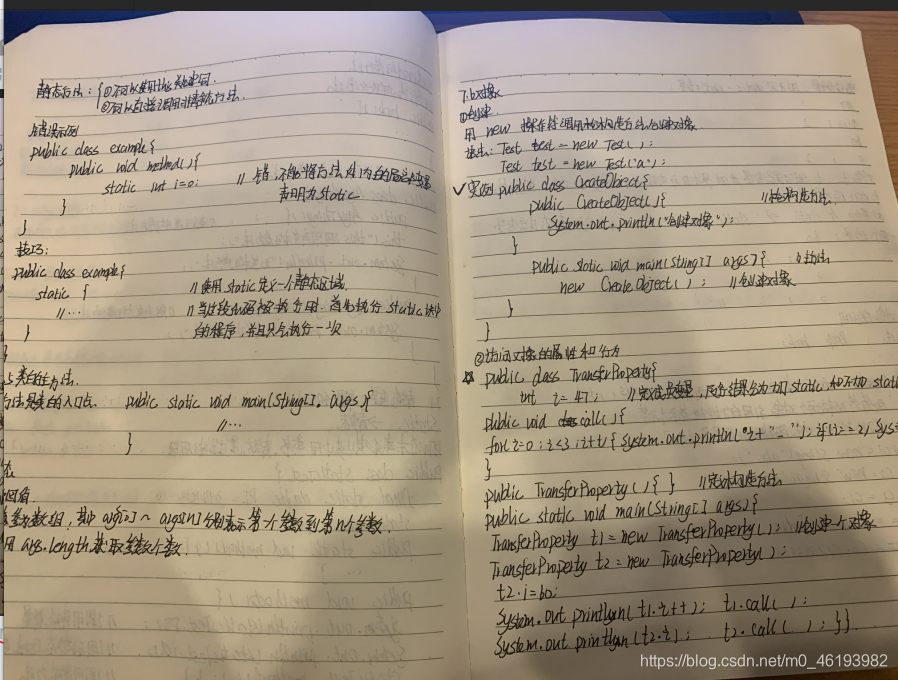 静态方法：①不可以使用this关键字.
②不可以直接调用非静态方法.
错误示例
public class example{
public void method(){
static int i=0; // 错，不能将方法体内的局部变量
声明为static
}
}
技巧：
public class example{
static { // 使用static定义一个静态区域
//... // 当这段代码被执行时，首先执行static块中
的程序，并且只会执行一次
}
}
类的主方法.
方法是类的入口点. public static void main(String[] args){
//...
}
参数数组，其中args[0]~args[n]分别表示第一个参数到第n个参数.
用 args.length 获取参数个数.
7.6对象
①创建
用 new 操作符调用构造方法创建对象
语法：Test test = new Test();
Test test = new Test("a");
✓实例 public class CreateObject{
public CreateObject(){ //构造方法
System.out.println("创建对象");
}
public static void main(String[] args){ //主方法
new CreateObject(); //创建对象
}
}
②访问对象的属性和行为
☆ public class TransferProperty{
int i=47; //定义成员变量，
public void call(){
for(i=0;i<3;i++){System.out.println(
}
public TransferProperty(){ } //定义构造方法
public static void main(String[] args){
TransferProperty t1=new TransferProperty(); //创建一个对象
TransferProperty t2=new TransferProperty();
t2.i=60;
System.out.println(t1.i++); t1.call();
System.out.println(t2.i); t2.call(); }}
https://blog.csdn.net/m0_46193982